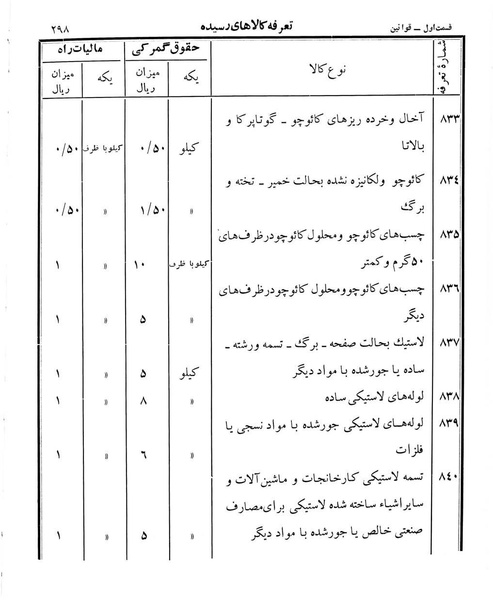 قسمت اول ــ قوانین
تعرفه کالاهای رسیده
۲۹۸
شمارهٔ تعرفه
نوع کالا
حقوق گمرکی
مالیات راه
یکه
میزان ریال
یکه
میزان ریال
۸۳۳ آخال وخرده ریزهای کائوچو ــ گوتاپرکا و
بالاتا کیلو ۰/۵۰ کیلو با ظرف ۰/۵۰
۸۳٤ کائوچو ولکانیزه نشده بحالت خمیر ــ تخته و
برگ » ۱/۵۰ » ۰/۵۰
۸۳۵ چسب‌های کائوچو ومحلول کائوچو درظرف‌های
۵۰گرم وکمتر کیلو با ظرف ۱۰ » ۱
۸۳۶ چسب‌های کائوچوومحلول کائوچودرظرف‌های
دیگر » ۵ » ۱
۸۳۷ لاستیك بحالت صفحه ــ برگ ــ تسمه ورشته ــ
ساده یا جورشده با مواد دیگر کیلو ۵ » ۱
۸۳۸ لوله‌های لاستیکی ساده » ۸ » ۱
۸۳۹ لوله‌های لاستیکی جورشده با مواد نسجی یا
فلزات » ۶ » ۱
۸٤۰ تسمه لاستیکی کارخانجات و ماشین‌آلات و
سایراشیاء ساخته شده لاستیکی برای‌مصارف
صنعتی خالص یا جورشده با مواد دیگر » ۵ » ۱